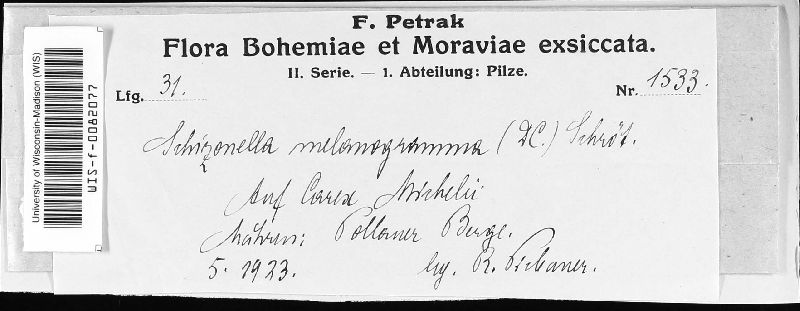 F. Petrak
Flora Bohemiae et Moraviae exsiccata.
II. Serie. — 1. Abteilung: Pilze.
Lfg. 31.
Nr. 1533.
Schizonella melanogramma (DC.) Schröt.
Auf Carex Michelii
Mähren: Pollauer Berge.
5. 1923. lg. R. Picbauer.
University of Wisconsin-Madison (WIS)
WIS-f-0082077